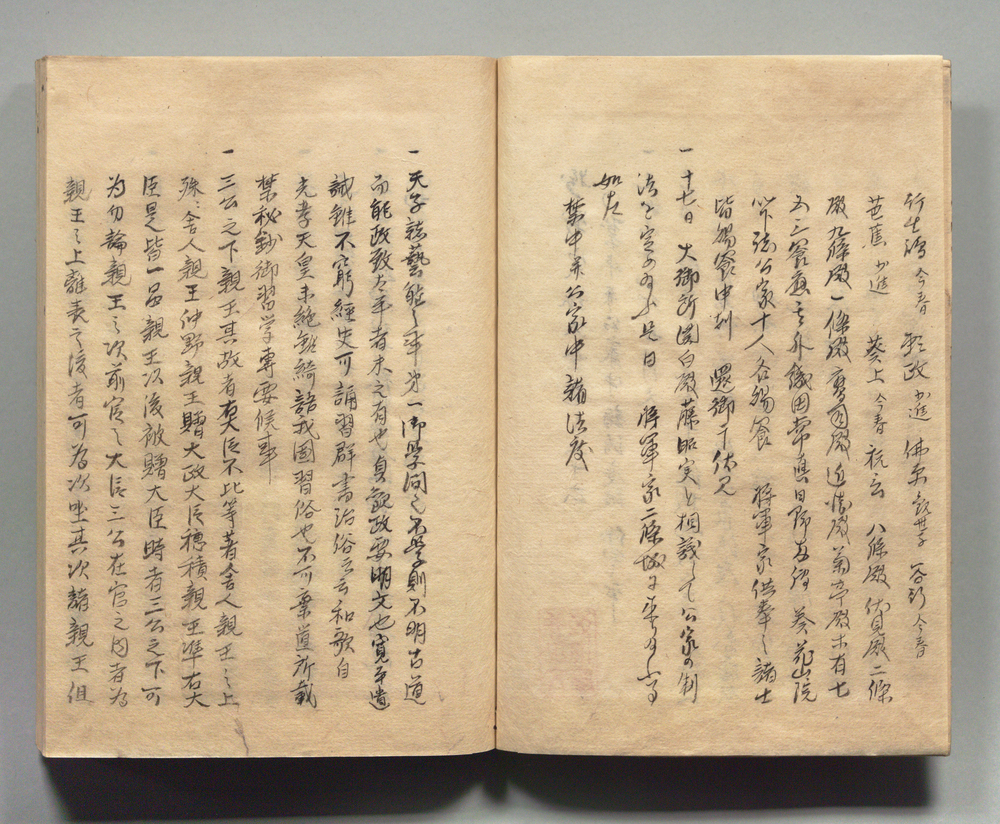 今春 頼政 少進 佛原 観世 今春
芭蕉 少進 葵上 今春 祝言 八條殿 伏見殿 二條
殿 九條殿 一條殿 鷹司殿 近衛殿 菊亭殿 未有七
五三饗應 其外 日野
以下諸公家十人各賜饗 将軍家供奉之諸士
皆賜饗申刻 還御于伏見
一 十七日 大御所関白殿藤昭実と相議して公家の制
法を定 是日 将軍家二條城
如左
禁中并公家中諸法度
一 天子諸藝能之事第一御學問也不學則不明古道
而能政致太平者未之有也貞観政要明文也寛平遺
誡雖不窮経史可誦習群書治俗云云和歌自
光孝天皇未絶雖綺語我國習俗也不可棄置所載
禁秘鈔御習学専要候事
一 三公之下親王其故者右大臣不比等著舎人親王之上
殊ニ舎人親王仲野親王贈大政大臣穂積親王準右大
臣是皆一品親王以後被贈大臣時者三公之下可
為勿論親王之次前官之大臣三公在官之内者為
親王之上辞表之後者可為次座其次諸親王但